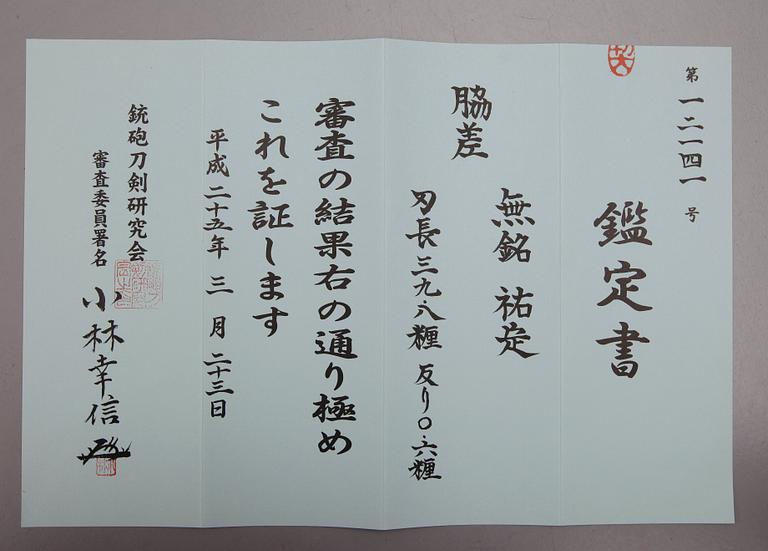 第一二一四一号
鑑定書
無銘 祐定
脇差
刃長三九・八糎 反り〇・六糎
審査の結果右の通り極め
これを証します
平成二十五年三月二十三日
銃砲刀剣研究会
審査委員署名
小林幸信